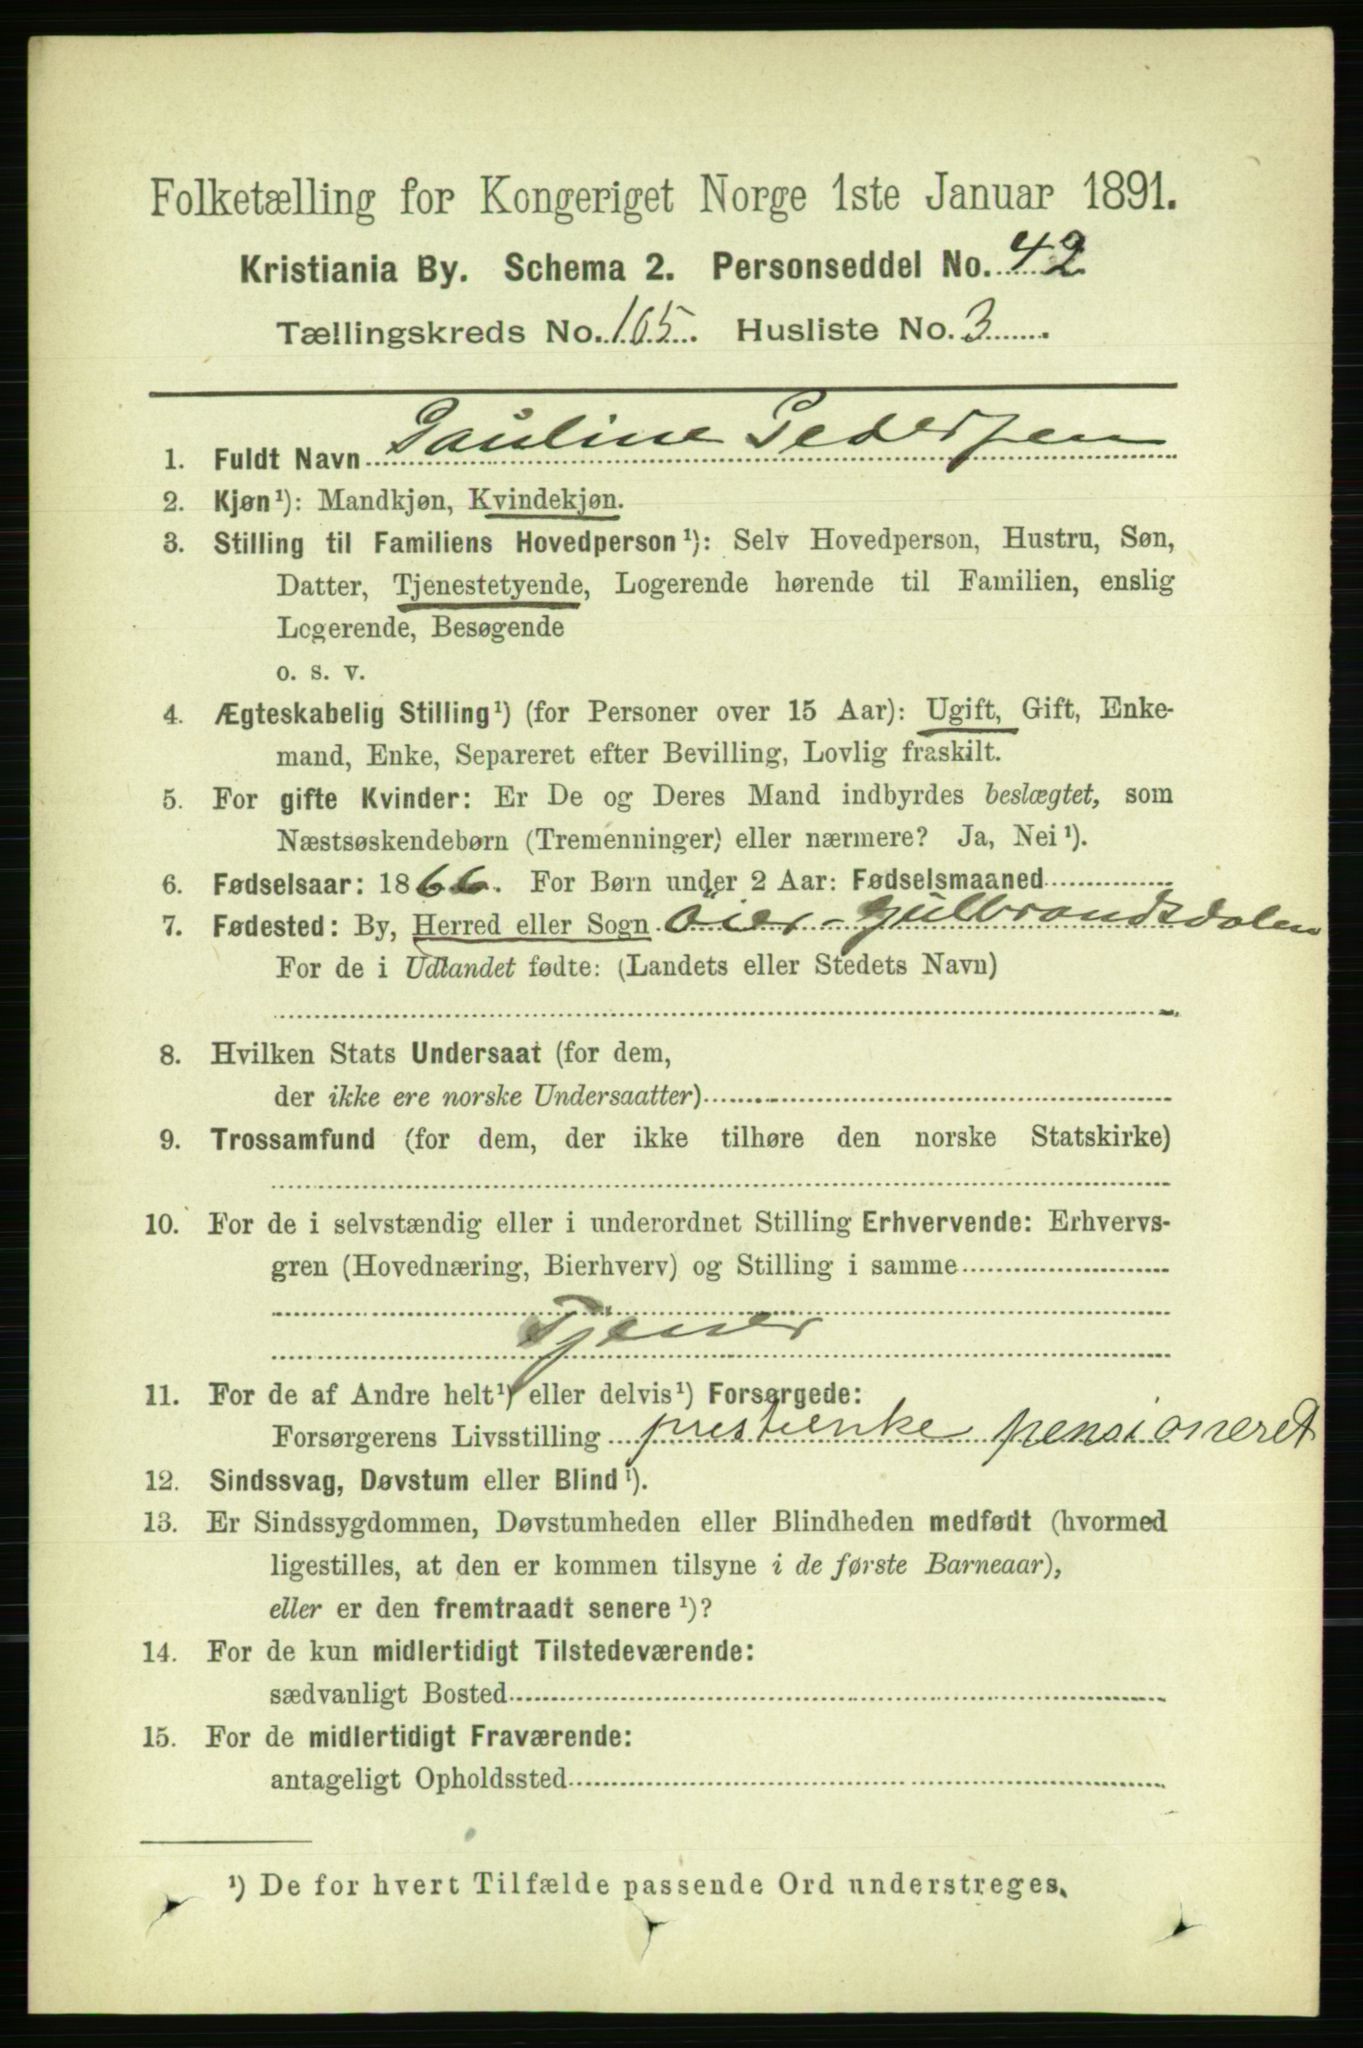 Folketælling for Kongeriget Norge 1ste Januar 1891.
Kristiania By. Schema 2. Personseddel No. 42
Tællingskreds No. 105. Husliste No. 3
1. Fuldt Navn Pauline Pedersen
2. Kjøn¹): Mandkjøn, Kvindekjøn.
3. Stilling til Familiens Hovedperson¹): Selv Hovedperson, Hustru, Søn,
Datter, Tjenestetyende, Logerende hørende til Familien, enslig
Logerende, Besøgende
o. s. v.
4. Ægteskabelig Stilling¹) (for Personer over 15 Aar): Ugift, Gift, Enke-
mand, Enke, Separeret efter Bevilling, Lovlig fraskilt.
5. For gifte Kvinder: Er De og Deres Mand indbyrdes beslægtet, som
Næstsøskendebørn (Tremenninger) eller nærmere? Ja, Nei¹).
6. Fødselsaar: 1866. For Børn under 2 Aar: Fødselsmaaned
7. Fødested: By, Herred eller Sogn Øier - Gulbrandsdalen
For de i Udlandet fødte: (Landets eller Stedets Navn)
8. Hvilken Stats Undersaat (for dem,
der ikke ere norske Undersaatter)
9. Trossamfund (for dem, der ikke tilhøre den norske Statskirke)
10. For de i selvstændig eller i underordnet Stilling Erhvervende: Erhvervs-
gren (Hovednæring, Bierhverv) og Stilling i samme
Tjener
11. For de af Andre helt¹) eller delvis¹) Forsørgede:
Forsørgerens Livsstilling prestienke pensioneret
12. Sindssvag, Døvstum eller Blind¹).
13. Er Sindssygdommen, Døvstumheden eller Blindheden medfødt (hvormed
ligestilles, at den er kommen tilsyne i de første Barneaar),
eller er den fremtraadt senere¹)?
14. For de kun midlertidigt Tilstedeværende:
sædvanligt Bosted
15. For de midlertidigt Fraværende:
antageligt Opholdssted
¹) De for hvert Tilfælde passende Ord understreges.